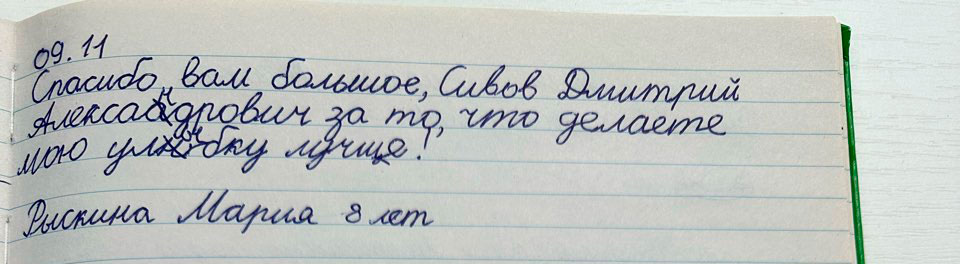 09.11
Спасибо вам большое, Сивов Дмитрий
Александрович за то, что делаете
мою улыбку лучше!
Рыскина Мария 8 лет